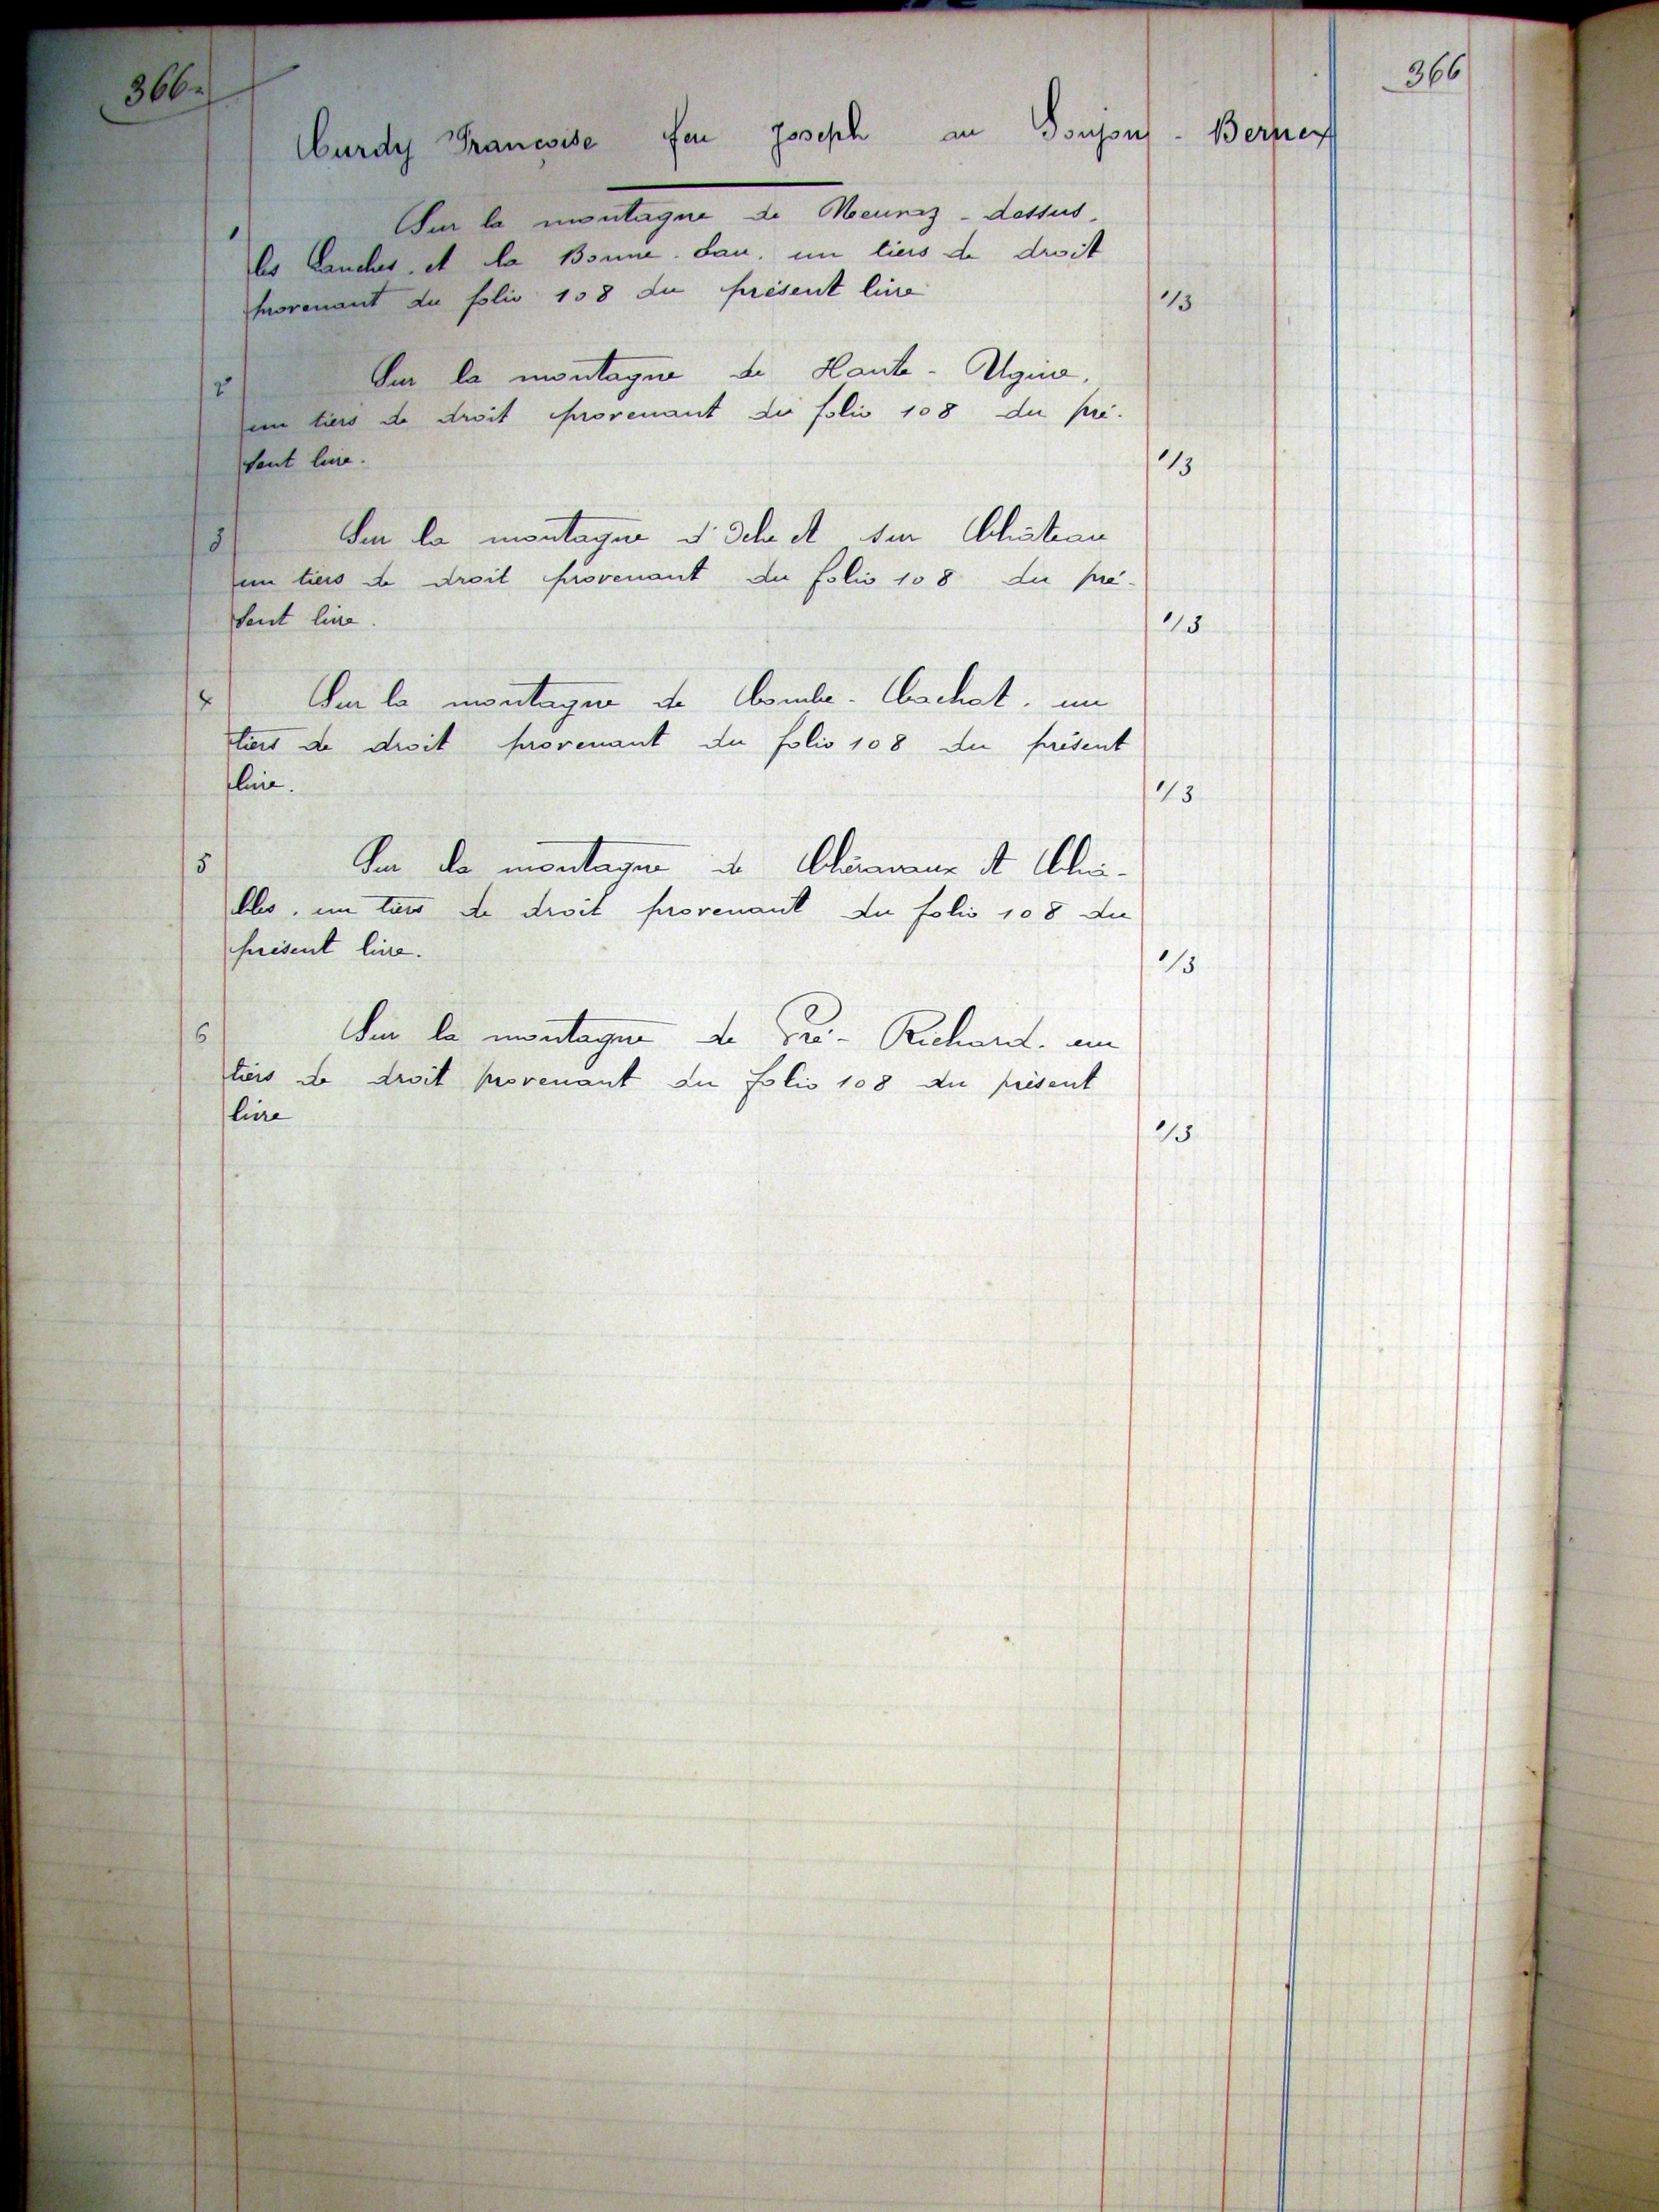 366
366
Curdy Françoise feu Joseph au Donjon - Bernex
1 Sur la montagne de Neuraz - dessus,
les Lanches, et la Bonne - Eau, un tiers de droit
provenant du folio 108 du présent livre 1/3
2 Sur la montagne de Haute - Ugine,
un tiers de droit provenant du folio 108 du pré-
sent livre. 1/3
3 Sur la montagne d'Oche et sur Château
un tiers de droit provenant du folio 108 du pré-
sent livre. 1/3
4 Sur la montagne de Combe - Cachot, un
tiers de droit provenant du folio 108 du présent
livre. 1/3
5 Sur la montagne de et
un tiers de droit provenant du folio 108 du
présent livre. 1/3
6 Sur la montagne de Pré - Richard, un
tiers de droit provenant du folio 108 du présent
livre 1/3